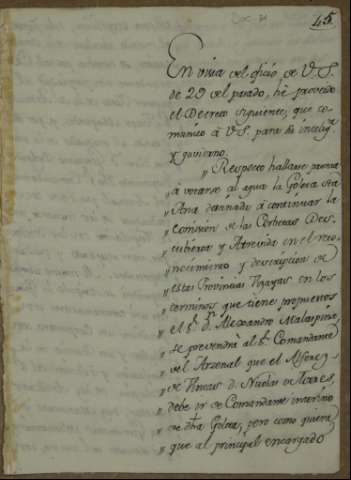 45
En vista del oficio de V.S.
de 29 del pasado, he proveido
el Decreto siguiente, que co-
munico á V.S. para su intelig.ª
y govierno.
" Respecto hallarse
" á votarse al agua la Goleta Sta
" Ana destinada á continuar la
" Comision de las Corbetas Des-
" cubierta y Atrevida en el reco-
" nocimiento y descripcion de
" estas Provincias Visayas en los
" terminos que tiene propuestos
" el S.r D.n Alexandro Malaspina,
" se prevendrá al S.r Comandante
" del Arsenal que el Alferez
" de D. Nicolas de Torres,
" debe ir de Comandante interino
" de dha Goleta, pero como quiera
" que al principal encargado